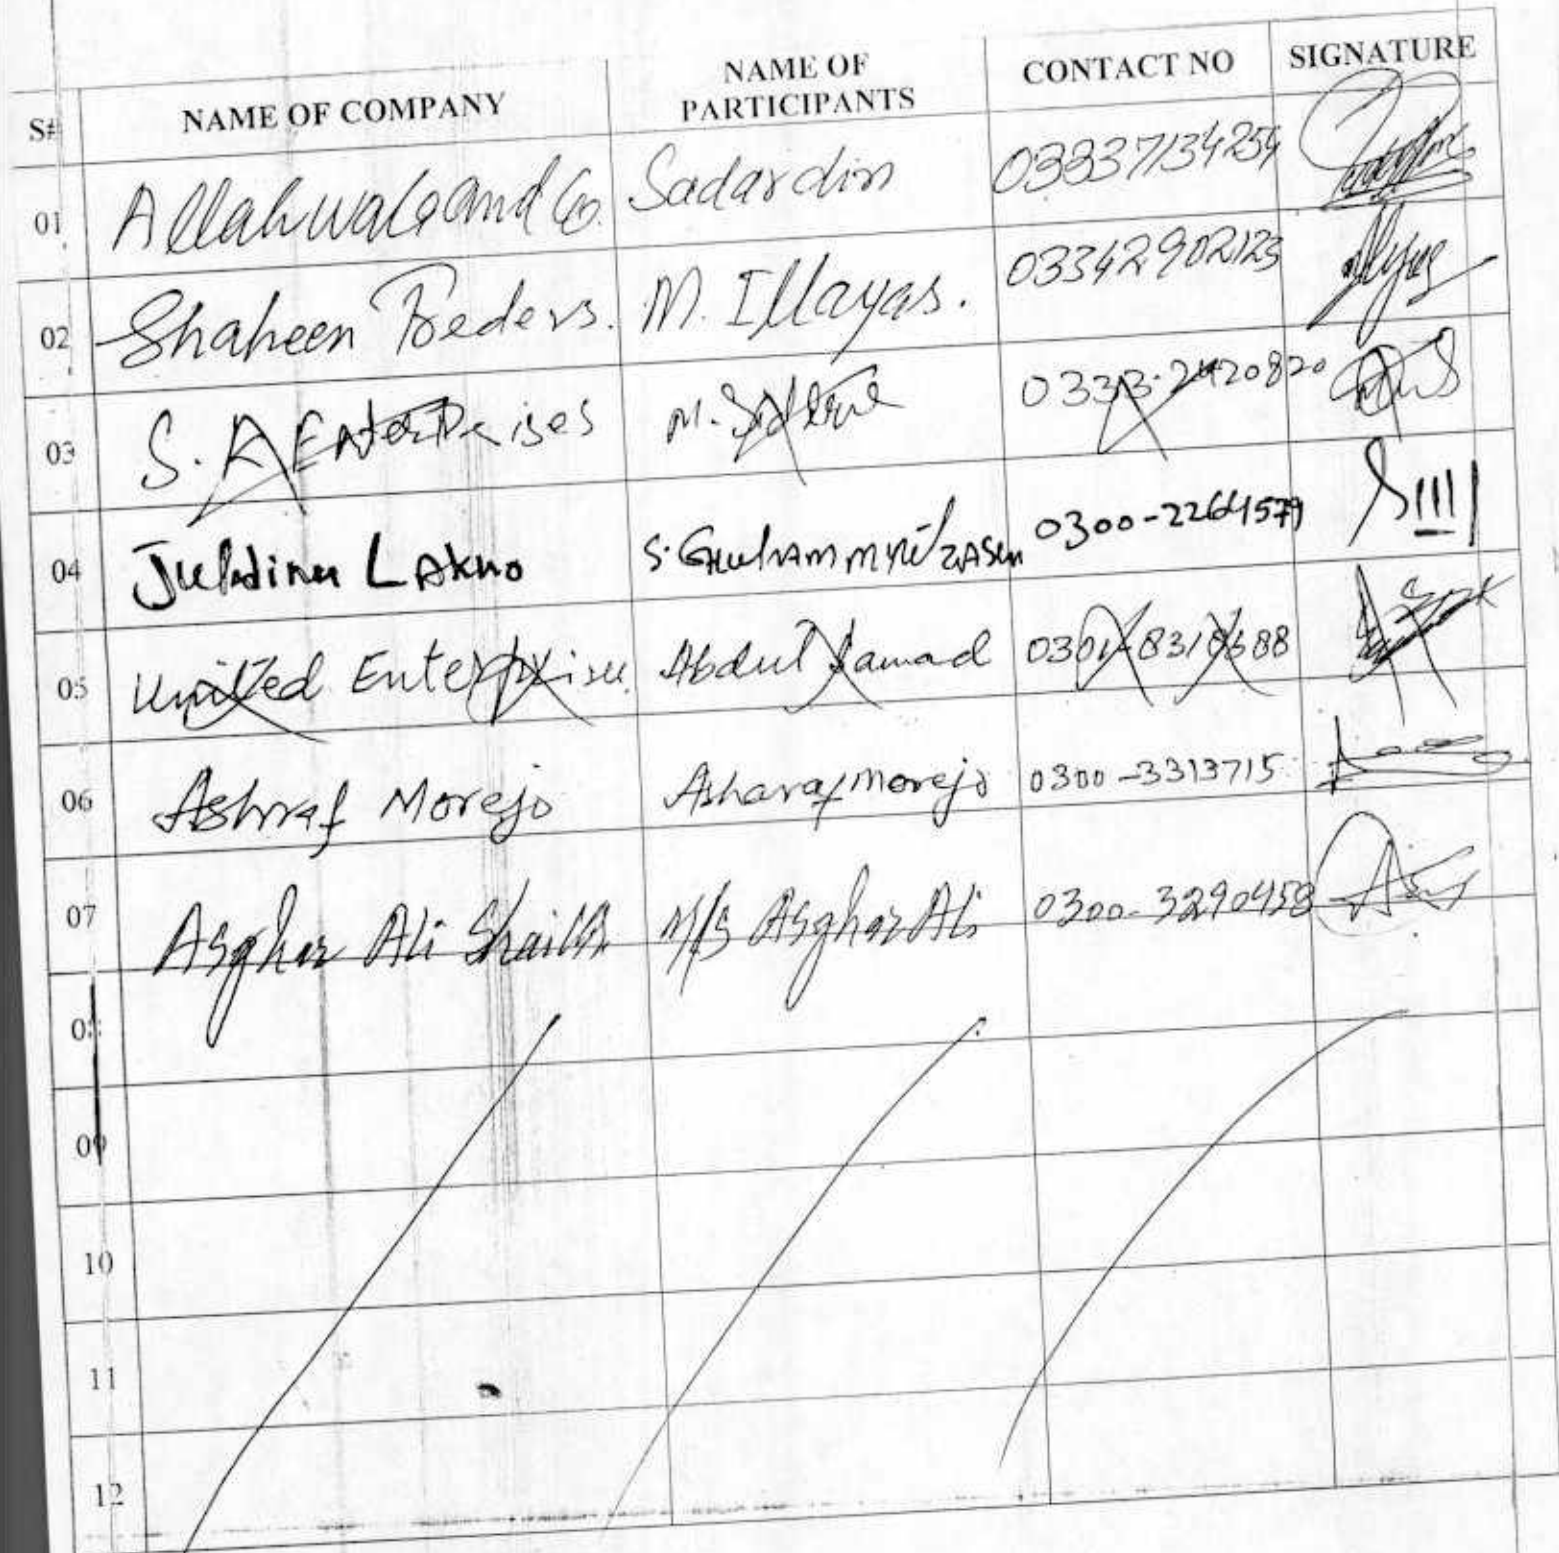 S# NAME OF COMPANY NAME OF PARTICIPANTS CONTACT NO SIGNATURE
01 Allahwala and Co. Sadardin 03337134254
02 Shaheen Treders. M. Illayas. 03342902123
03 S. A Enterprises M. 0333-2420820
04 Lakho S. Ghulam 0300-2264579
05 United Enterprise. Abdul Samad 0301-8318388
06 Ashraf Morejo Asharaf morejo 0300-3313715
07 Asghar Ali Shaikh M/S Asghar Ali 0300-3290458
08
09
10
11
12